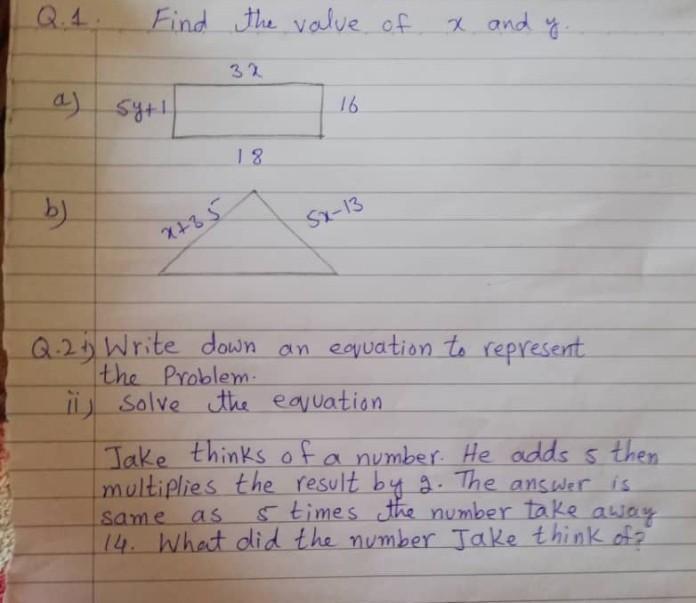 Q.1. Find the value of x and y.
3x
a) 5y+1 16
18
b) x+35 5x-13
Q.2 i) Write down an equation to represent
the Problem.
ii) Solve the equation
Jake thinks of a number. He adds 5 then
multiplies the result by 2. The answer is
same as 5 times the number take away
14. What did the number Jake think of?